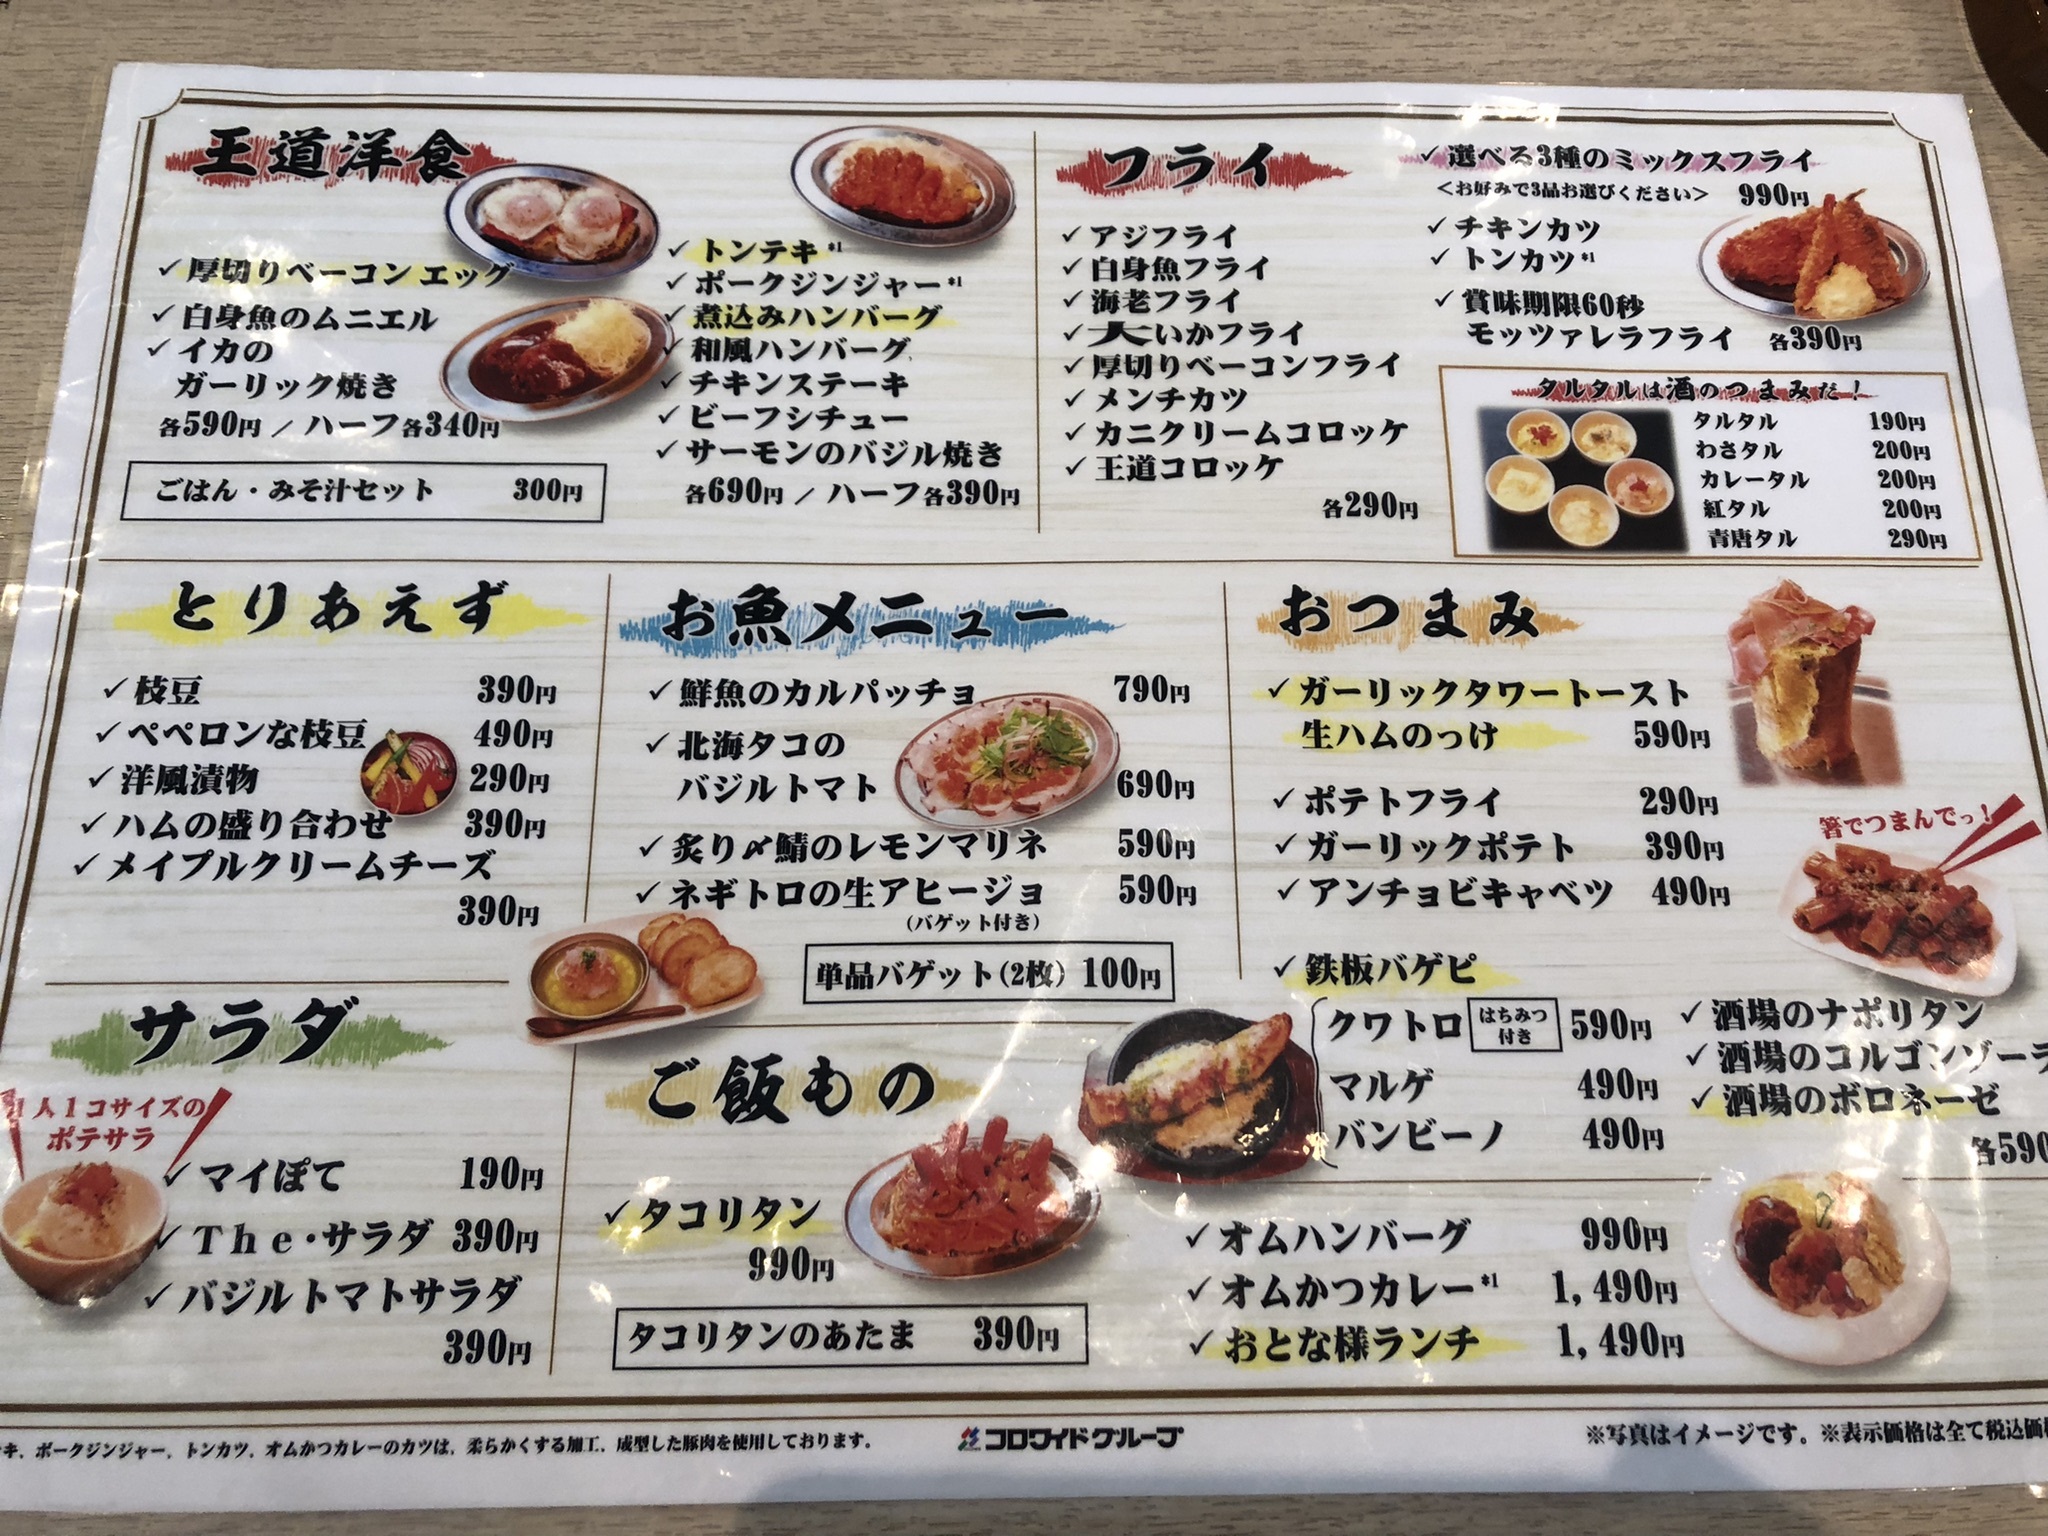 王道洋食
✓厚切りベーコン エッグ
✓白身魚のムニエル
✓イカの
ガーリック焼き
各590円 / ハーフ各340円
ごはん・みそ汁セット 300円
✓トンテキ*1
✓ポークジンジャー*1
✓煮込みハンバーグ
✓和風ハンバーグ
✓チキンステーキ
✓ビーフシチュー
✓サーモンのバジル焼き
各690円 / ハーフ各390円
フライ
✓アジフライ
✓白身魚フライ
✓海老フライ
✓大いかフライ
✓厚切りベーコンフライ
✓メンチカツ
✓カニクリームコロッケ
✓王道コロッケ
各290円
✓選べる3種のミックスフライ
<お好みで3品お選びください> 990円
✓チキンカツ
✓トンカツ*1
✓賞味期限60秒
モッツァレラフライ 各390円
タルタルは酒のつまみだ!
タルタル 190円
わさタル 200円
カレータル 200円
紅タル 200円
青唐タル 290円
とりあえず
✓枝豆 390円
✓ペペロンな枝豆 490円
✓洋風漬物 290円
✓ハムの盛り合わせ 390円
✓メイプルクリームチーズ
390円
お魚メニュー
✓鮮魚のカルパッチョ 790円
✓北海タコの
バジルトマト 690円
✓炙り〆鯖のレモンマリネ 590円
✓ネギトロの生アヒージョ 590円
(バゲット付き)
単品バゲット(2枚) 100円
おつまみ
✓ガーリックタワートースト
生ハムのっけ 590円
✓ポテトフライ 290円
✓ガーリックポテト 390円
✓アンチョビキャベツ 490円
✓鉄板バゲピ
クワトロ はちみつ付き 590円
マルゲ 490円
バンビーノ 490円
箸でつまんでっ!
✓酒場のナポリタン
✓酒場のコルゴンゾーラ
✓酒場のボロネーゼ
各590
サラダ
1人1コサイズの
ポテサラ
✓マイぽて 190円
✓The・サラダ 390円
✓バジルトマトサラダ
390円
ご飯もの
✓タコリタン
990円
タコリタンのあたま 390円
✓オムハンバーグ 990円
✓オムかつカレー*1 1,490円
✓おとな様ランチ 1,490円
キ、ポークジンジャー、トンカツ、オムかつカレーのカツは、柔らかくする加工、成型した豚肉を使用しております。
コロワイドグループ
※写真はイメージです。※表示価格は全て税込価格